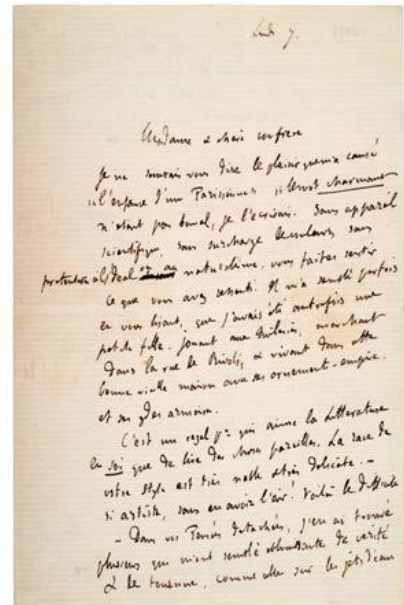 Lundi 7.
Madame & cher confrère
Je ne saurais vous dire le plaisir que m'a causé
« l'enfance d'une Parisienne » si le mot charmant
n'était pas banal, je l'écrirais. Sans appareil
scientifique, sans surcharge de couleurs, sans
prétention à l'idéal ou au naturalisme, vous faites sentir
ce que vous avez ressenti. Il m'a semblé parfois
en vous lisant, que j'avais été autrefois une
petite fille, jouant aux Tuileries, marchant
dans la rue de Rivoli, & vivant dans cette
bonne vieille maison avec ses ornements-empire.
et ses gdes armoires.
C'est un régal pr qui aime la littérature
en soi que de lire des choses pareilles. La race de
votre style est très noble et très délicate. –
si artiste, sans en avoir l'air! Voilà le difficile
– Dans vos Pensées détachées, j'en ai trouvé
plusieurs qui m'ont semblé de vérité
& de , comme celle sur les jets d'eau